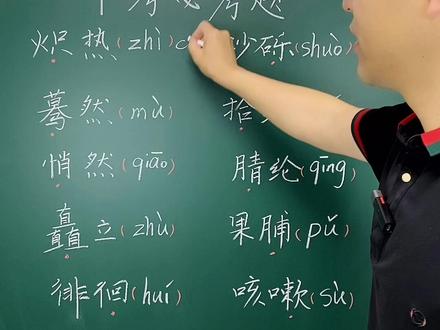 炽热(zhì) 砾(shuò)
蓦然(mù) 拾
悄然(qiāo) 腈纶(qīng)
矗立(zhù) 果脯(pǔ)
徘徊(huí) 咳嗽(sù)